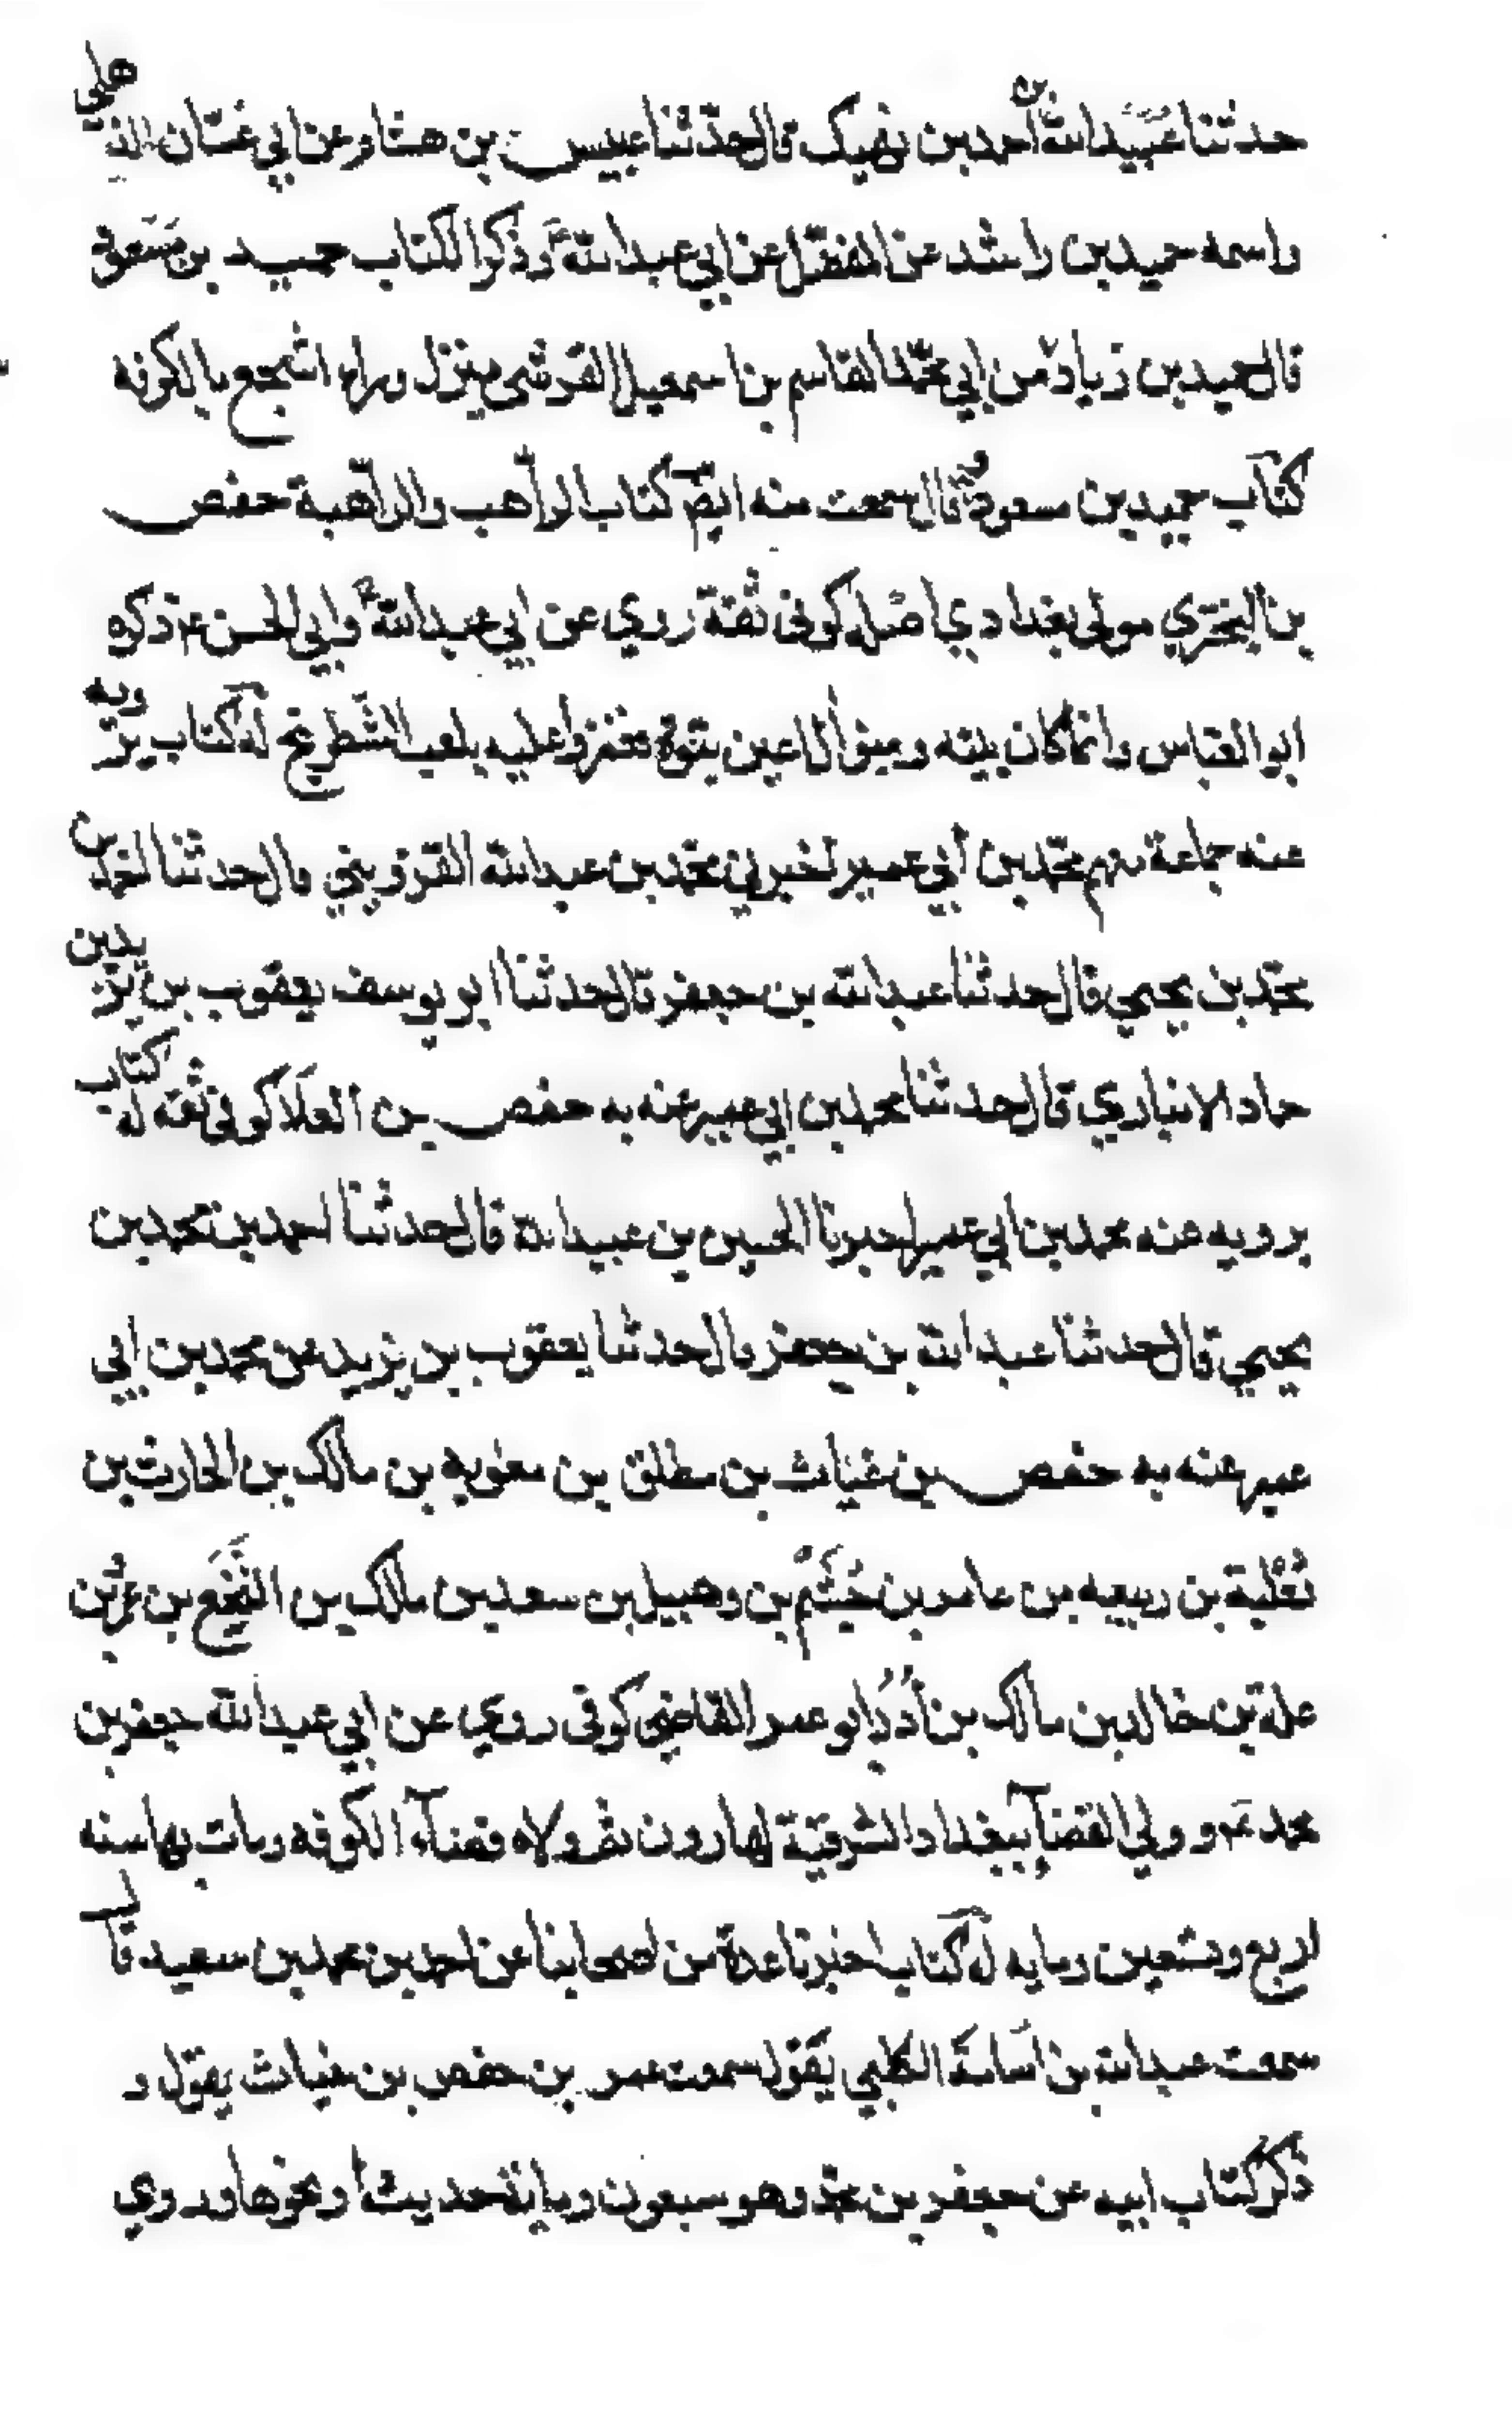 حدثنا عبيد الله بن أحمد بن نهيك قال حدثنا عبيس بن هشام عن ابي غسان الذهلي
واسمه حميد بن راشد عن المفضل عن ابي عبد الله ع وذكر الكتاب حميد بن مسعود
قال حميد بن زياد من ابي محمد القاسم بن اسمعيل القرشي ينزل وراء اشجع بالكوفه
كتاب حميد بن مسعود و قال سمعت منه ايضا كتاب الراهب والراهبة حفص
بن البختري مولى بغدادي اصله كوفى ثقة روي عن ابي عبد الله ع وابي الحسن ع ذكره
ابو العباس وانما كان بينه وبين آل اعين نبوة فغمزوا عليه بلعب الشطرنج له كتاب يرويه
عنه جماعة منهم محمد بن أبي عمير اخبرني محمد بن عبد الله القزويني قال حدثنا احمد بن
محمد بن يحيي قال حدثنا عبد الله بن جعفر قال حدثنا ابو يوسف يعقوب بن يزيد بن
حماد الانباري قال حدثنا محمد بن ابي عمير عنه به حفص بن العلا كوفى ثقه له كتاب
يرويه عنه محمد بن ابي عمير اخبرنا الحسين بن عبيد الله قال حدثنا احمد بن محمد بن
يحيي قال حدثنا عبد الله بن جعفر قال حدثنا يعقوب بن يزيد عن محمد بن ابي
عمير عنه به حفص بن غياث بن طلق بن معويه بن مالك بن الحارث بن
ثعلبة بن ربيعه بن عامر بن جشم بن وهبيل بن سعد بن مالك بن النخع بن عمرو بن
علة بن خالد بن مالك بن أدد ابو عمر القاضي كوفى روي عن ابي عبد الله جعفر بن
محمد ع و ولي القضآء ببغداد الشرقية لهارون ثم ولاه قضآء الكوفه ومات بها سنه
اربع وتسعين ومايه له كتاب اخبرنا عدة من اصحابنا عن احمد بن محمد بن سعيد قال
سمعت عبد الله بن اسامة الكلبي يقول سمعت عمر بن حفص بن غياث يقول و
ذكر كتاب ابيه عن جعفر بن محمد وهو سبعون ومائة حديث او نحوها وروي